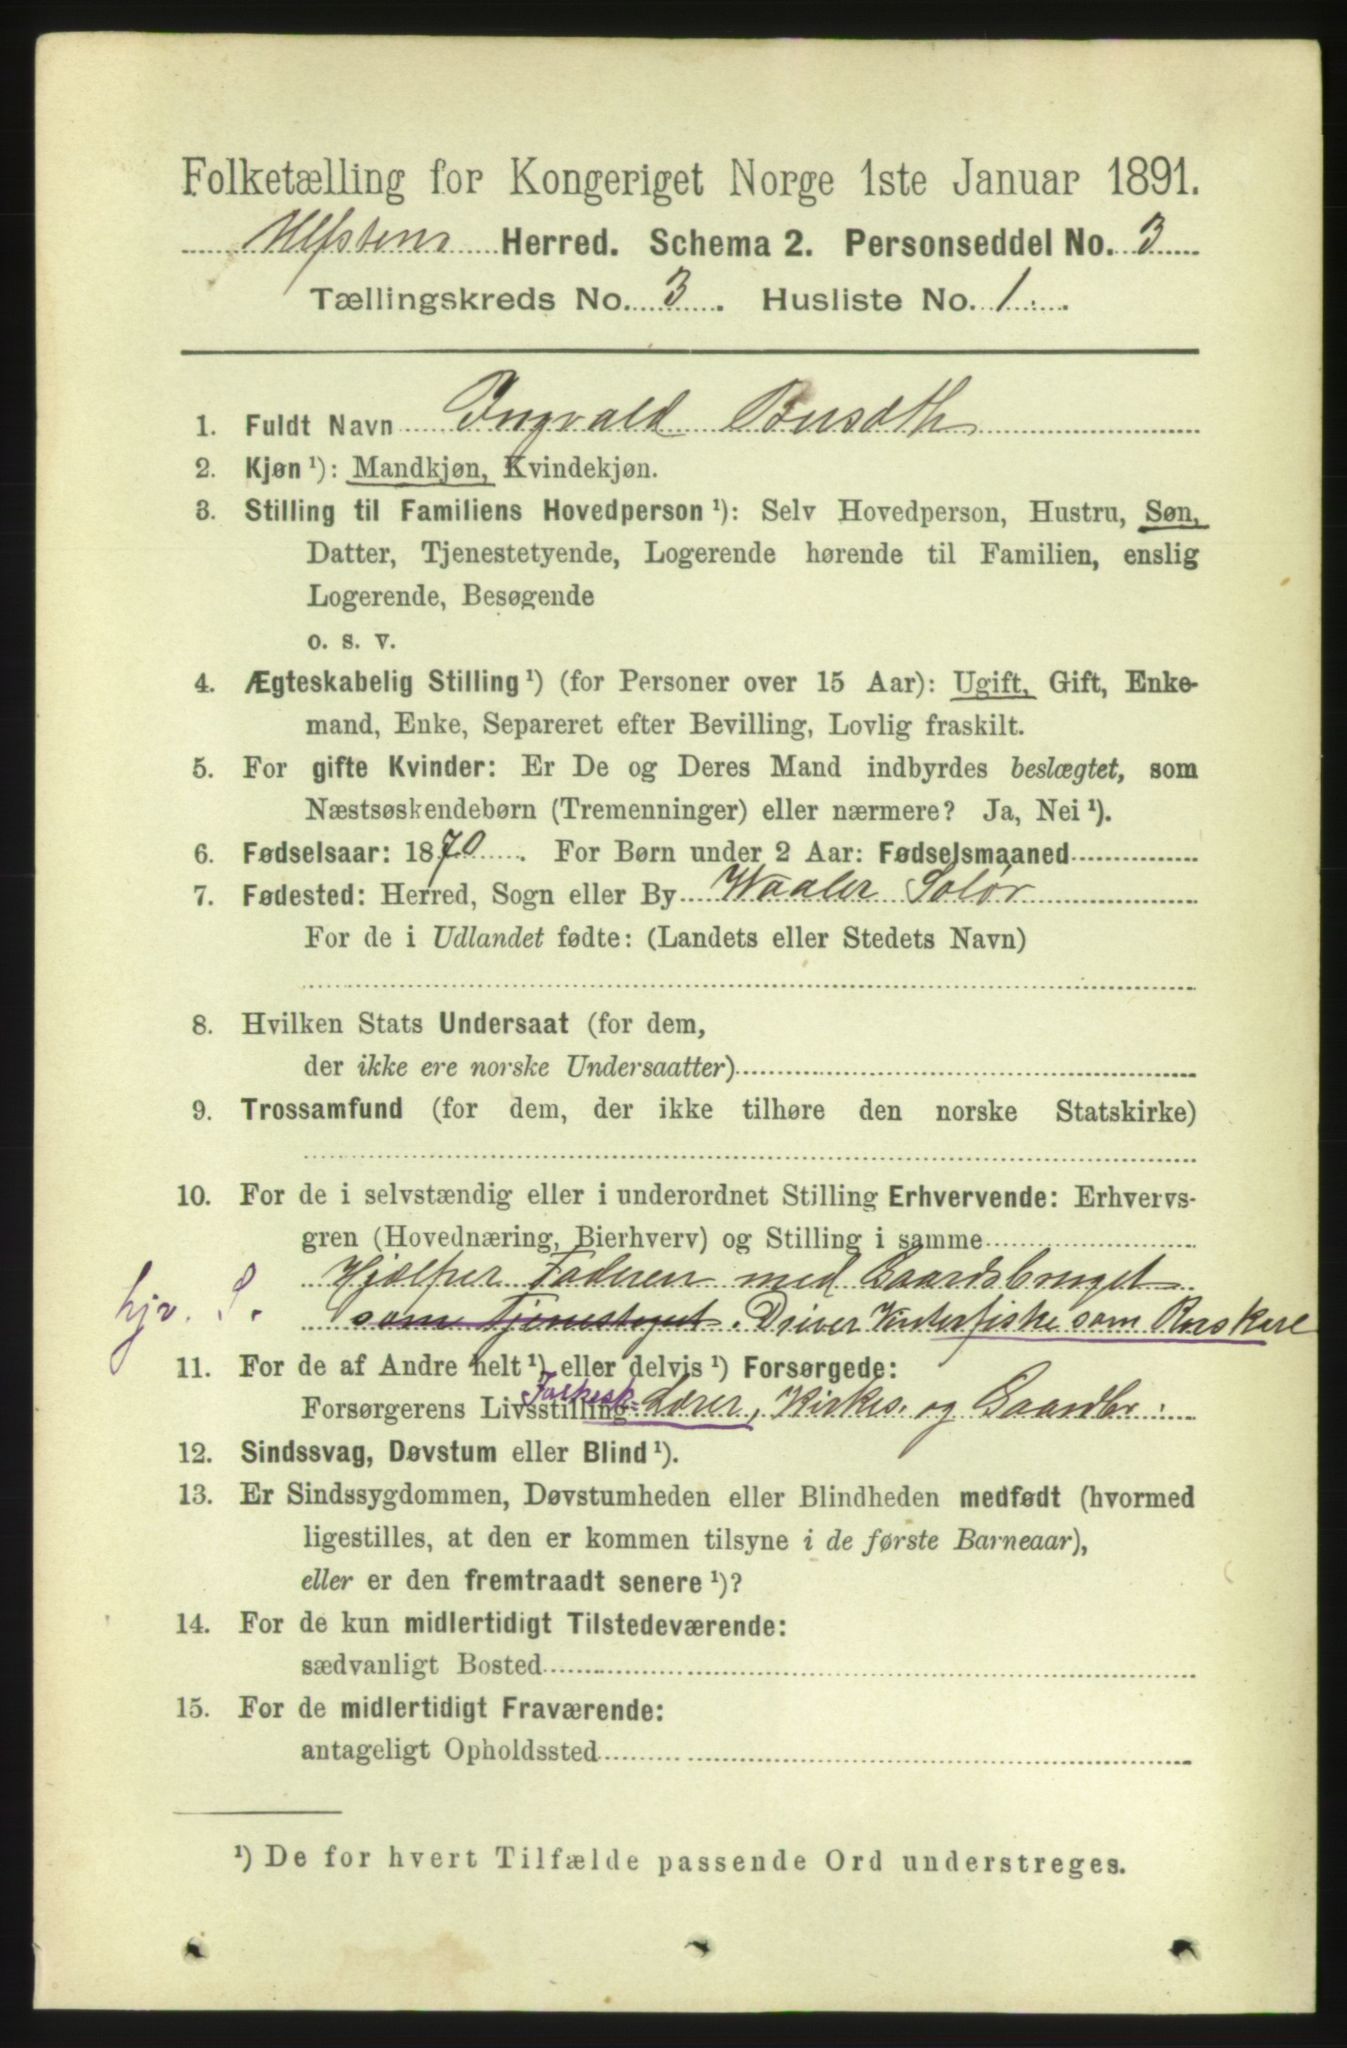 Folketælling for Kongeriget Norge 1ste Januar 1891.
Ulfstens Herred. Schema 2. Personseddel No. 3
Tællingskreds No. 3. Husliste No. 1.
1. Fuldt Navn Ingvald Busdth
2. Kjøn ¹): Mandkjøn, Kvindekjøn.
3. Stilling til Familiens Hovedperson ¹): Selv Hovedperson, Hustru, Søn,
Datter, Tjenestetyende, Logerende hørende til Familien, enslig
Logerende, Besøgende
o. s. v.
4. Ægteskabelig Stilling ¹) (for Personer over 15 Aar): Ugift, Gift, Enke-
mand, Enke, Separeret efter Bevilling, Lovlig fraskilt.
5. For gifte Kvinder: Er De og Deres Mand indbyrdes beslægtet, som
Næstsøskendebørn (Tremenninger) eller nærmere? Ja, Nei ¹).
6. Fødselsaar: 1870. For Børn under 2 Aar: Fødselsmaaned
7. Fødested: Herred, Sogn eller By Waaler Solør
For de i Udlandet fødte: (Landets eller Stedets Navn)
8. Hvilken Stats Undersaat (for dem,
der ikke ere norske Undersaatter)
9. Trossamfund (for dem, der ikke tilhøre den norske Statskirke)
10. For de i selvstændig eller i underordnet Stilling Erhvervende: Erhvervs-
gren (Hovednæring, Bierhverv) og Stilling i samme
Hjælper Faderen med Gaardsbruget
hjv. S. som Tjenestegut. Driver Vinterfiske som Rorskarl
11. For de af Andre helt ¹) eller delvis ¹) Forsørgede:
Forsørgerens Livsstilling Folkesk. Lærer, Kirkes. og Gaardbr.
12. Sindssvag, Døvstum eller Blind ¹).
13. Er Sindssygdommen, Døvstumheden eller Blindheden medfødt (hvormed
ligestilles, at den er kommen tilsyne i de første Barneaar),
eller er den fremtraadt senere ¹)?
14. For de kun midlertidigt Tilstedeværende:
sædvanligt Bosted
15. For de midlertidigt Fraværende:
antageligt Opholdssted
¹) De for hvert Tilfælde passende Ord understreges.